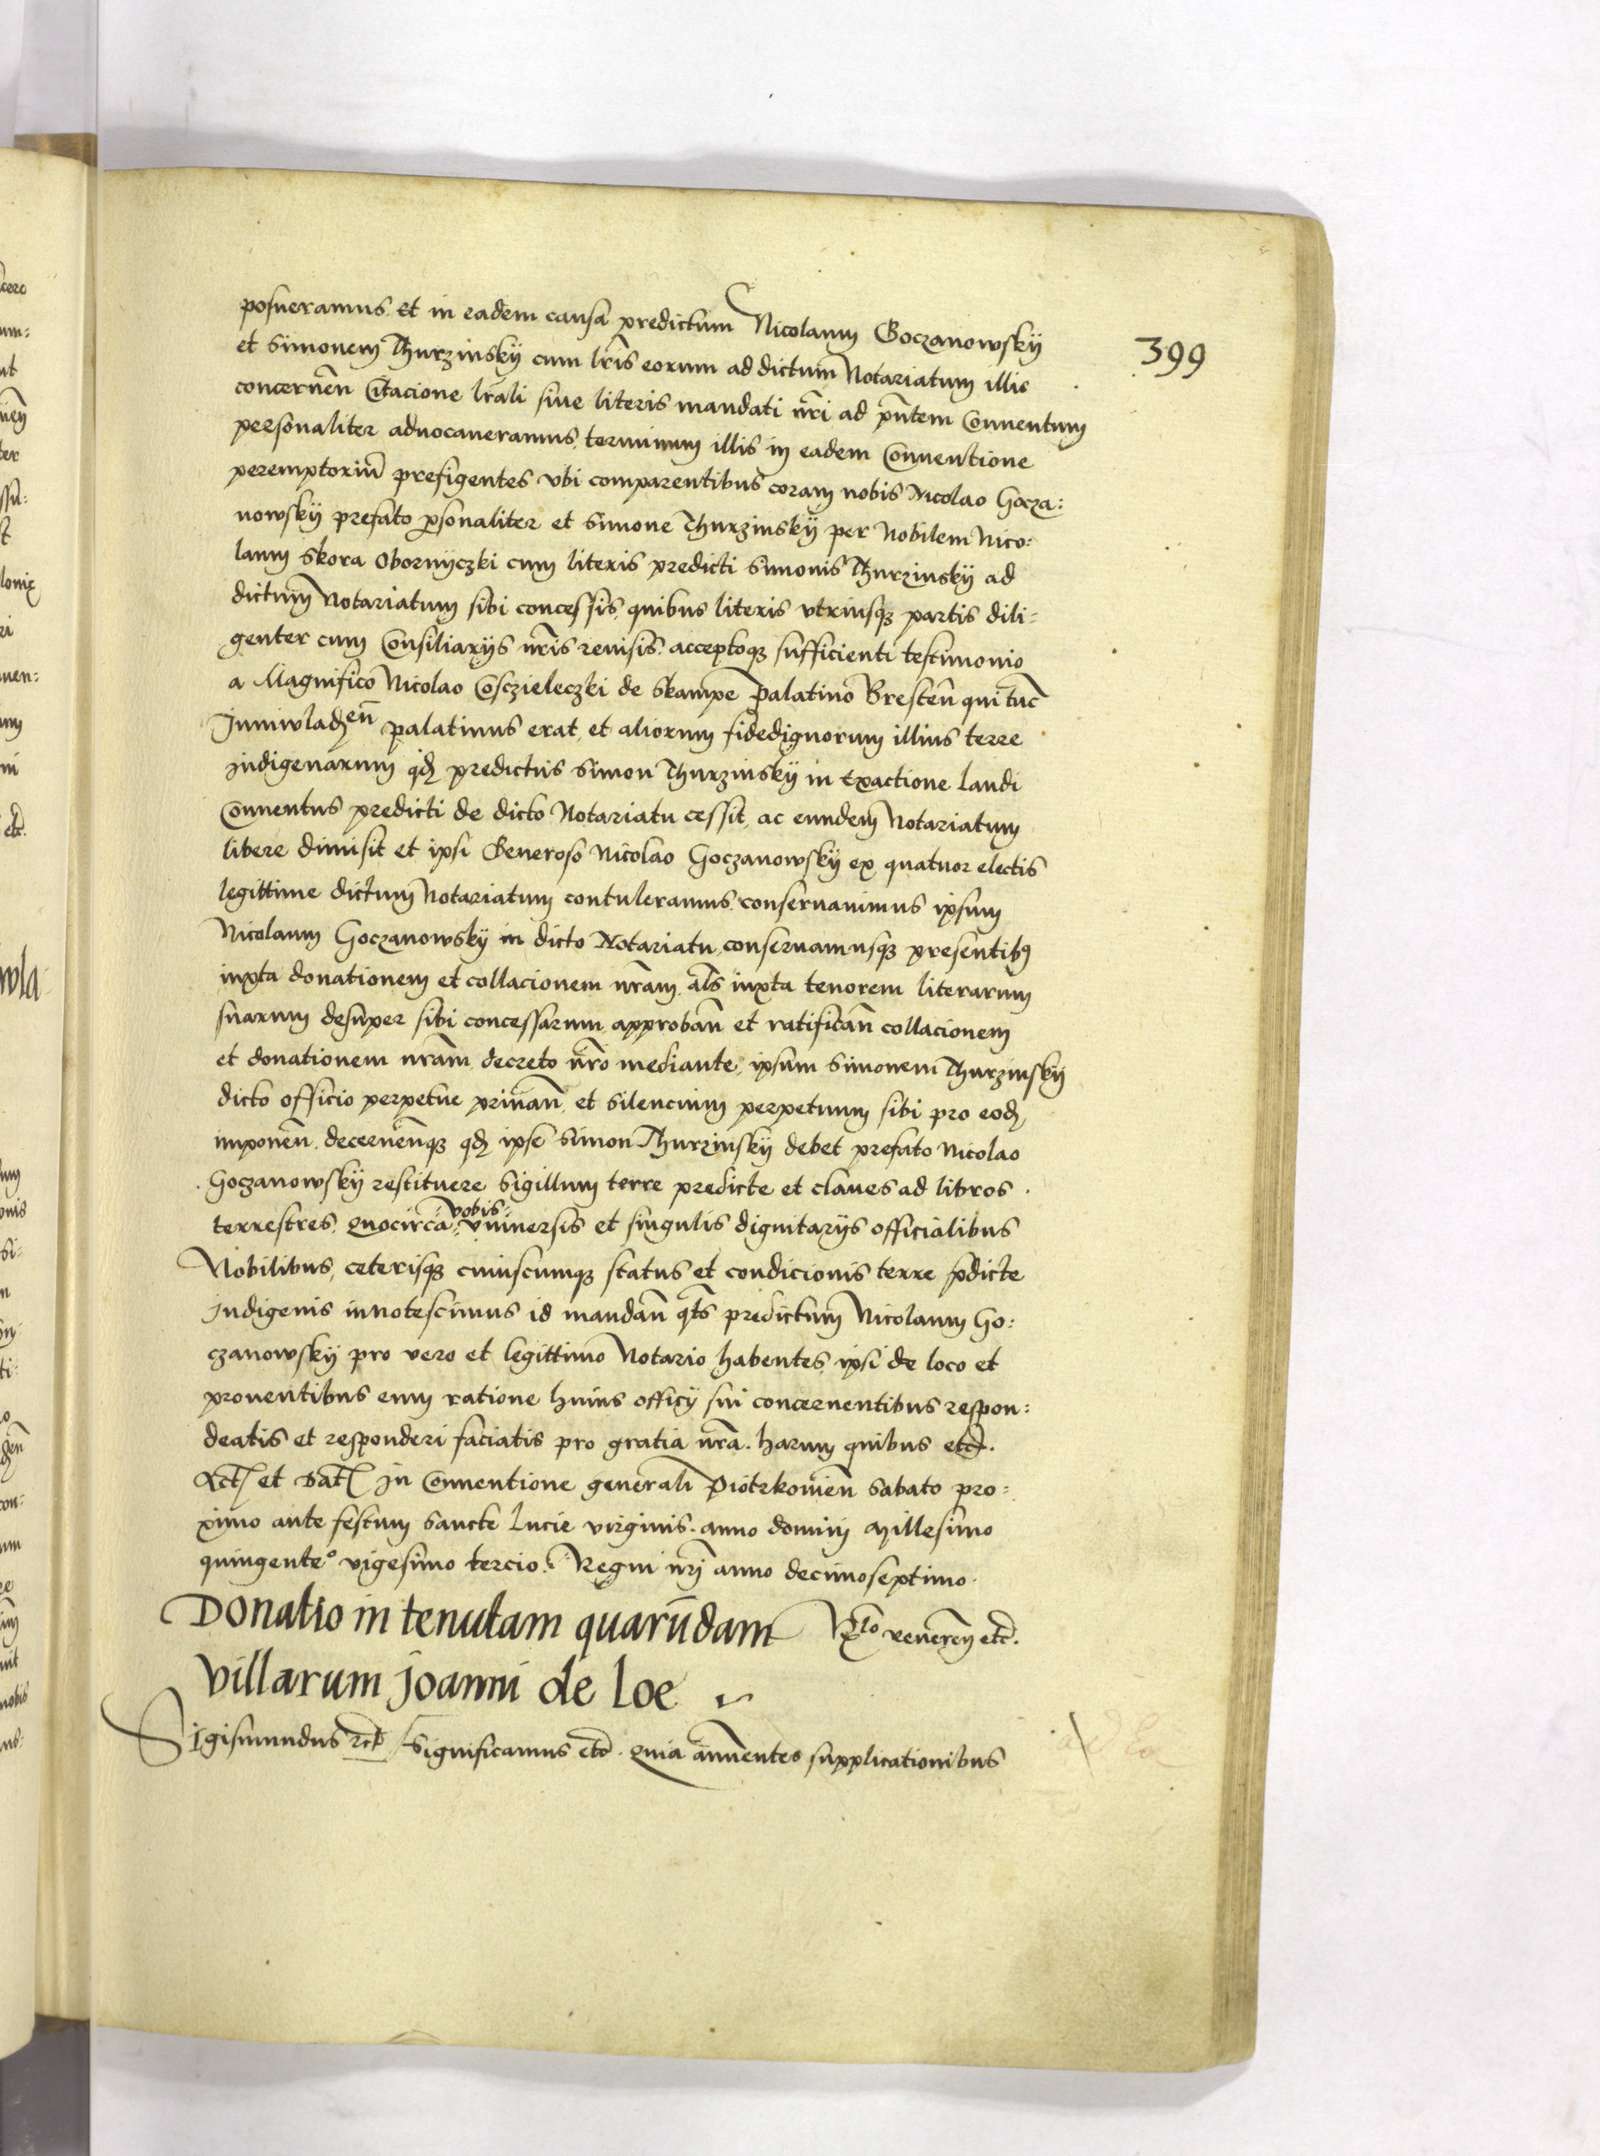 399
posueramus. Et in eadem causa predictum Nicolaum Goczanowskÿ
et Simonem Thurzinskÿ cum lr̄is eorum ad dictum Notariatum illis
concernen̄ Citacione lr̄ali siue literis mandati nr̄i ad pn̄tem Conuentum
personaliter aduocaueramus, terminum illis in eadem Conuentione
peremptoriū prefigentes vbi comparentibus coram nobis Nicolao Gocza:
nowskÿ prefato p̄sonaliter et Simone Thurzinskÿ per Nobilem Nico:
laum Skora Obornyczki cum literis predicti Simonis Thurzinskÿ ad
dictum Notariatum sibi concessis, quibus literis vtriusqȝ partis dili-
genter cum Consiliarÿs nr̄is reuisis, acceptoqȝ sufficienti testimonio
a Magnifico Nicolao Cosczieleczki de Skampe Palatino Bresten̄ qui tūc
Juniwladȝen̄ palatinus erat, et aliorum fidedignorum illius terre
indigenarum qđ predictus Simon Thurzinskÿ in Exactione laudi
Conuentus predicti de dicto Notariatu cessit, ac eundem Notariatum
libere dimisit et ipsi Generoso Nicolao Goczanowskÿ ex quatuor electis
legittime dictum Notariatum contuleramus, conseruauimus ipsum
Nicolaum Goczanowskÿ in dicto Notariatu, conseruamusqȝ presentibȝ
iuxta donationem et collacionem nr̄am. al̄s iuxta tenorem literarum
suarum desuper sibi concessarum, approban̄ et ratifican̄ collacionem
et donationem nr̄am, decreto nr̄o mediante, ipsum Simonem Thurzinskÿ
dicto officio perpetue priuan̄, et silencium perpetuum sibi pro eodȝ
imponen̄. decernen̄qȝ qđ ipse Simon Thurzinskÿ debet prefato Nicolao
Goczanowskÿ restituere Sigillum terre predicte et claues ad libros
terrestres. Quocirca vobis vniuersis et singulis dignitarÿs officialibus
Nobilibus, ceterisqȝ cuiuscumqȝ status et condicionis terre p̄dicte
indigenis innotescimus id mandan̄ q̄ts predictum Nicolaum Go:
czanowskÿ pro vero et legittimo Notario habentes, ipsi de loco et
prouentibus eum ratione huius officÿ sui concernentibus respon:
deatis et responderi faciatis pro gratia nr̄a. harum quibus etc̄.
Act̄ et Dat̄ In Conuentione generali Piotrkouien̄ Sabato pro:
ximo ante festum Sancte Lucie virginis. anno domini Millesimo
quingente° vigesimo tercio. Regni nr̄i anno decimoseptimo.
Donatio in tenutam quarūdam Rl̄o reueren̄ etc̄.
villarum Joanni de Loe
Sigismundus etc̄ Significamus etc̄. Quia annuentes supplicationibus